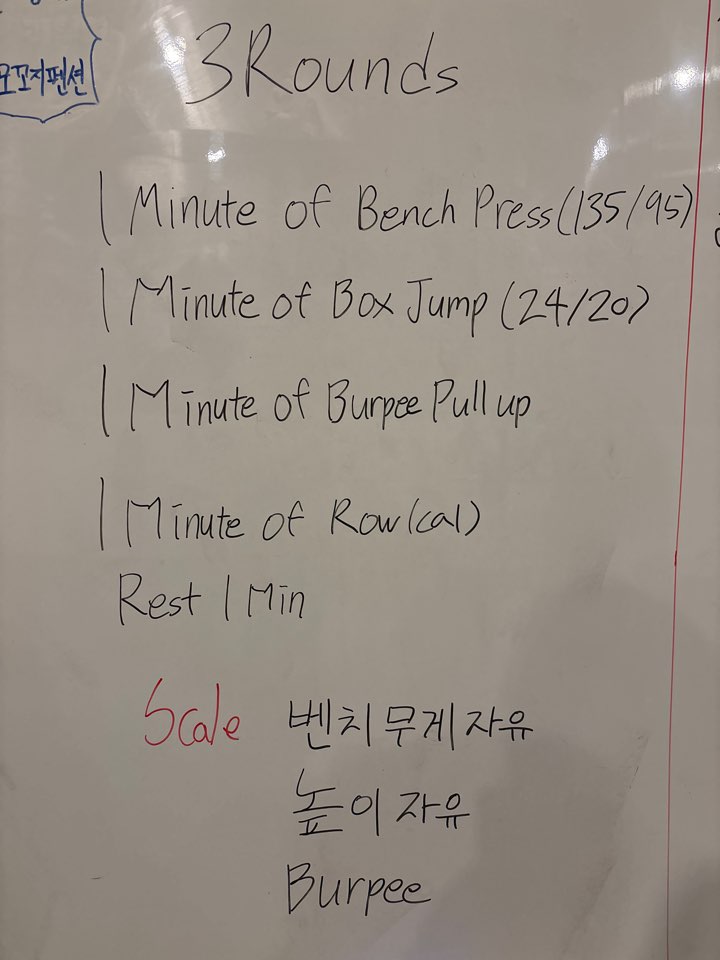 모꼬지펜션
3 Rounds
1 Minute of Bench Press (135/95)
1 Minute of Box Jump (24/20)
1 Minute of Burpee Pull up
1 Minute of Row (cal)
Rest 1 Min
Scale 벤치 무게 자유
높이 자유
Burpee